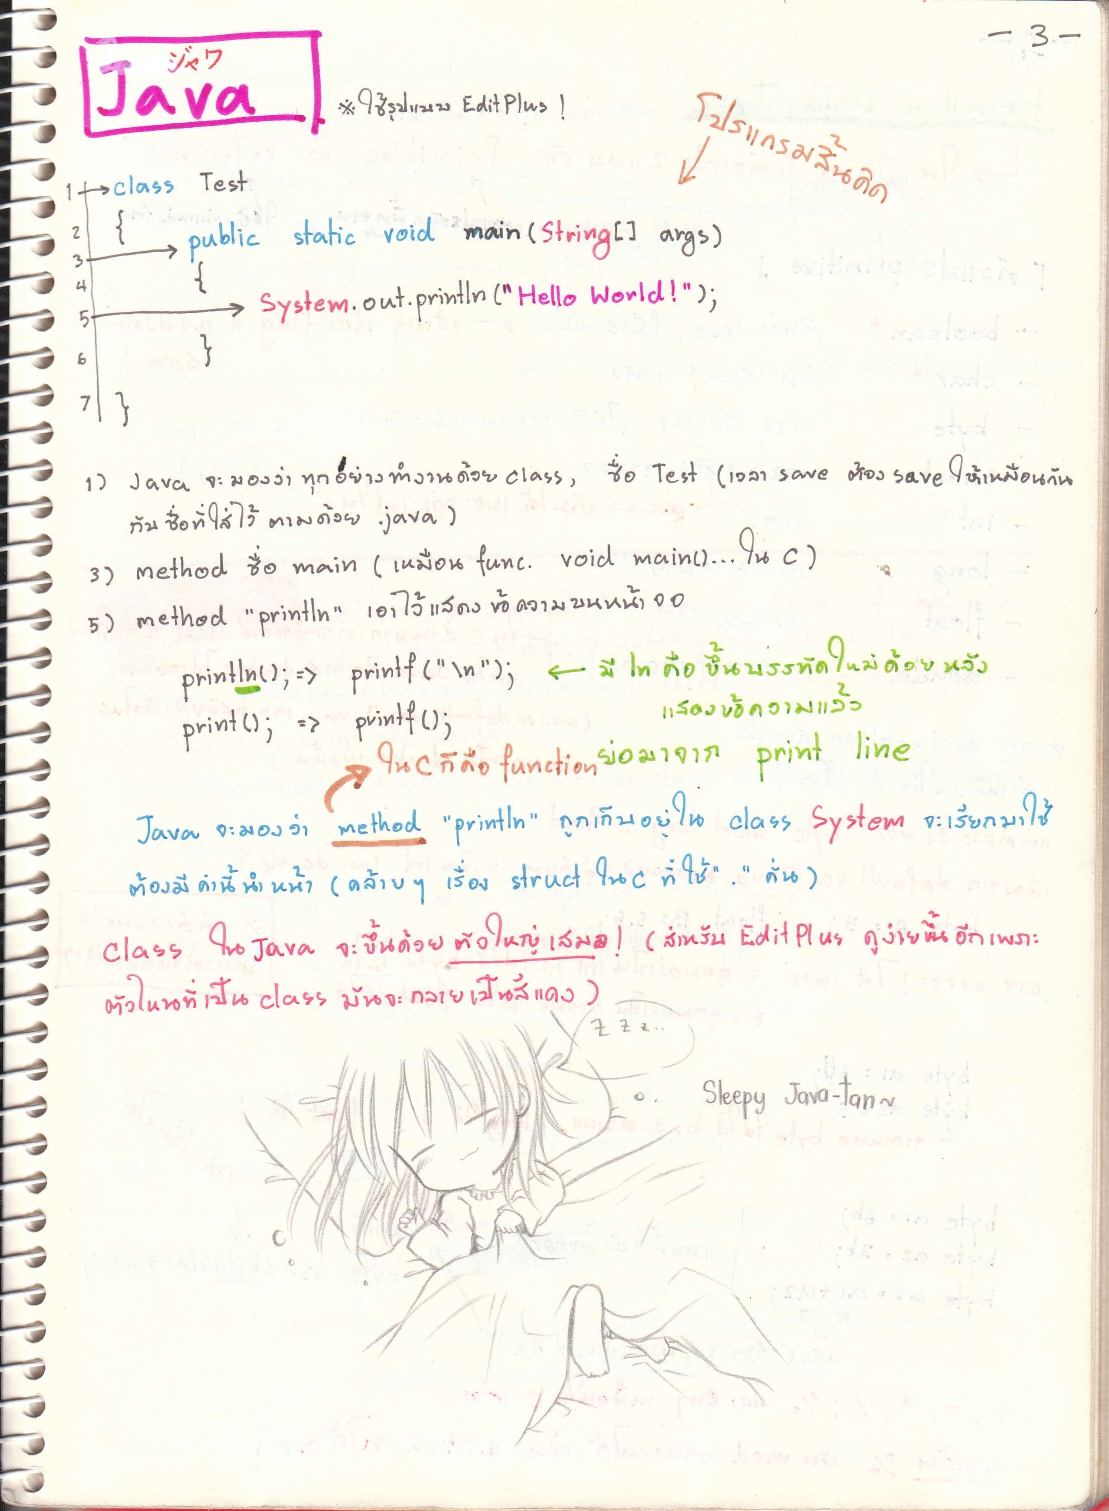 - 3 -
ジャワ
Java
※ ใช้รูปแบบ EditPlus !
โปรแกรมสิ้นคิด
1 class Test
2 {
3 public static void main(String[] args)
4 {
5 System.out.println("Hello World!");
6 }
7 }
1) Java จะมองว่า ทุกอย่างทำงานด้วย class, ชื่อ Test (เวลา save ต้อง save ให้เหมือนกัน
กับ ชื่อที่ใส่ไว้ ตามด้วย .java)
3) method ชื่อ main (เหมือน func. void main()... ใน C)
5) method "println" เอาไว้แสดงข้อความบนหน้าจอ
println(); => printf("\n"); ← มี ln คือ ขึ้นบรรทัดใหม่ด้วย หลัง
แสดงข้อความแล้ว
print(); => printf();
ย่อมาจาก print line
ใน C ก็คือ function
Java จะมองว่า method "println" ถูกเก็บอยู่ใน class System จะเรียกมาใช้
ต้องมีคำนี้นำหน้า (คล้ายๆ เรื่อง struct ใน C ที่ใช้ "." คั่น)
class ใน Java จะขึ้นด้วย ตัวใหญ่เสมอ! (สำหรับ EditPlus ดูง่ายขึ้นอีกเพราะ
ตัวไหนที่เป็น class มันจะกลายเป็นสีแดง)
z z z..
Sleepy Java-tan~